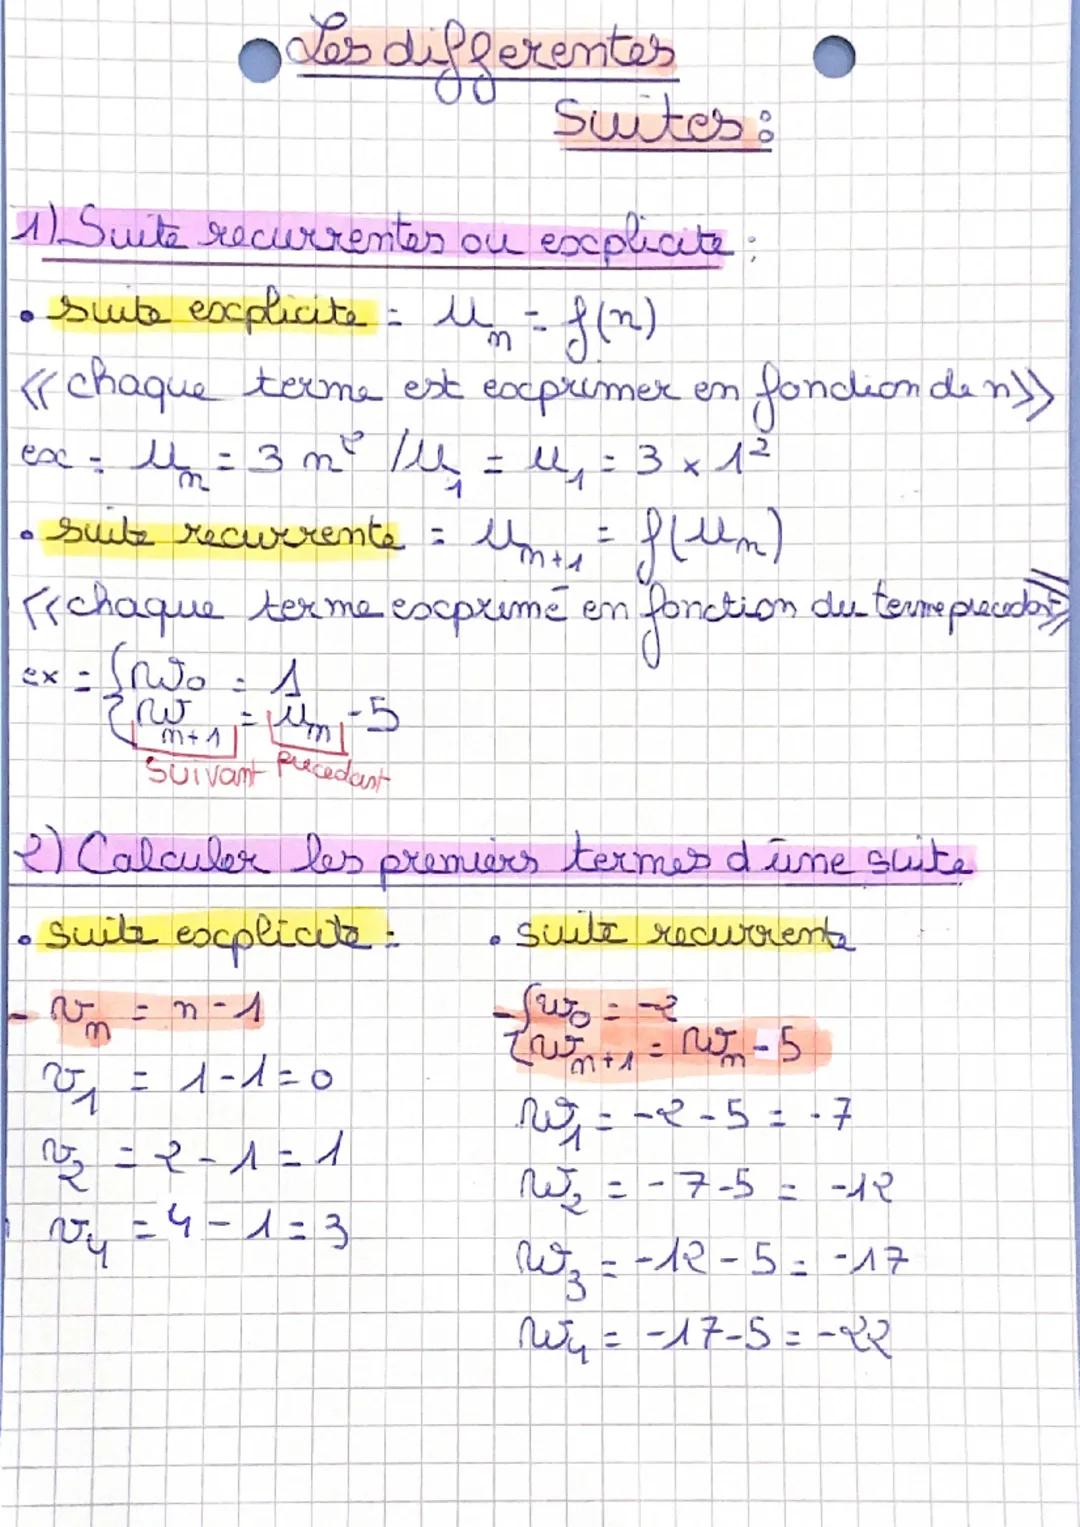 Les differentes
Suites :
1) Suite recurrentes ou explicite :
• suite explicite = Un = f(n)
«chaque terme est exprimer en fonction de n»
ex = Un = 3n² / U1 = U1 = 3 × 1²
• suite recurrente = Un+1 = f(Un)
«chaque terme exprimé en fonction du terme precedant»
ex = { W0 = 1
{ Wn+1 = Un - 5
suivant precedant
2) Calculer les premiers termes d'une suite
• suite explicite :
- Vn = n - 1
V1 = 1 - 1 = 0
V2 = 2 - 1 = 1
V4 = 4 - 1 = 3
• suite recurrente
- { W0 = -2
{ Wn+1 = Wn - 5
W1 = -2 - 5 = -7
W2 = -7 - 5 = -12
W3 = -12 - 5 = -17
W4 = -17 - 5 = -22